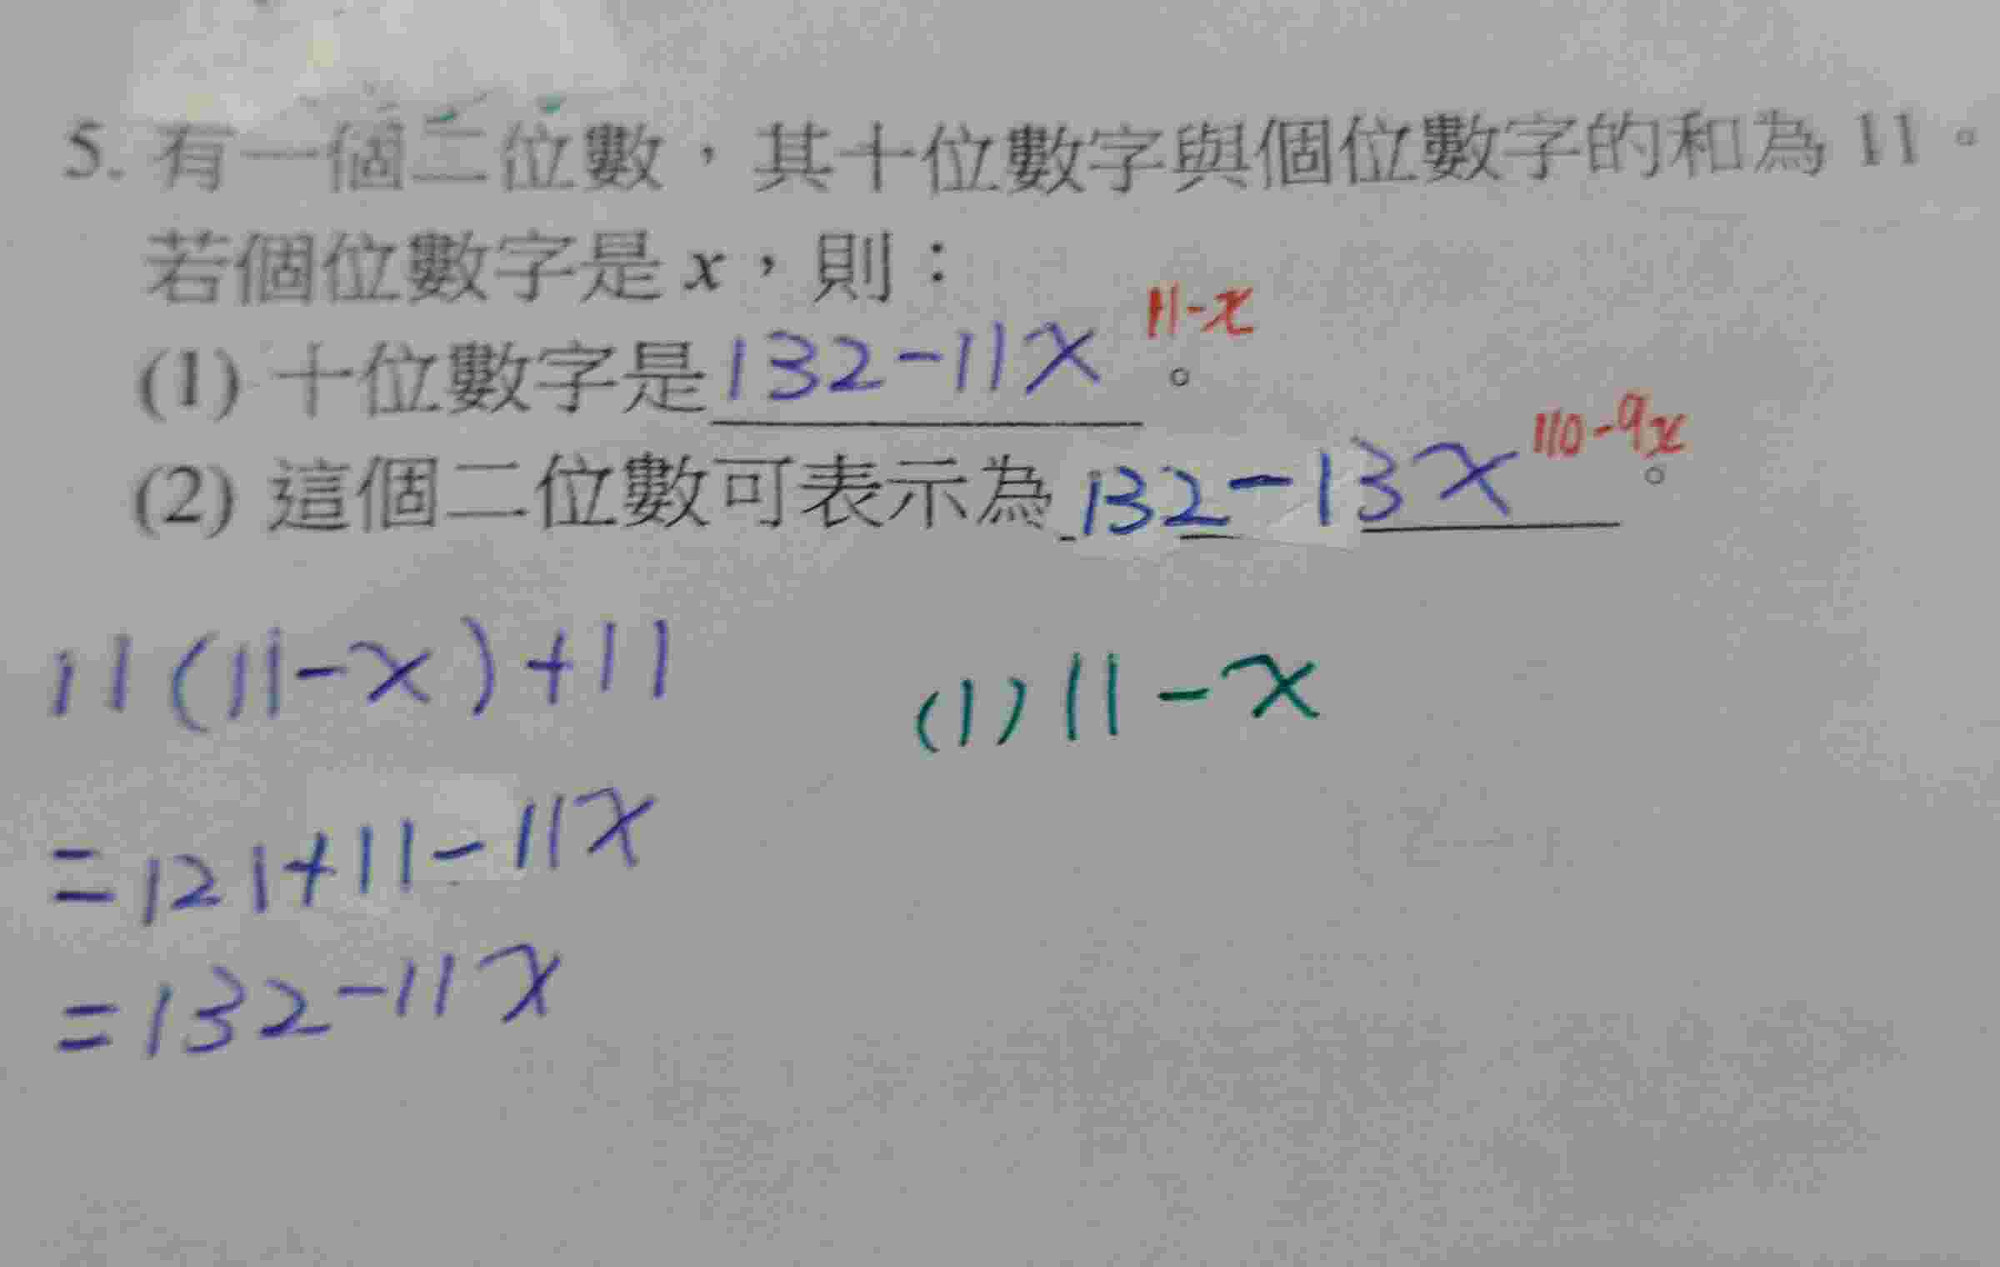 5. 有一個二位數，其十位數字與個位數字的和為 11。
若個位數字是 x，則：
(1) 十位數字是 132-11x 11-x 。
(2) 這個二位數可表示為 132-13x 110-9x 。
11(11-x)+11
(1) 11-x
=121+11-11x
=132-11x